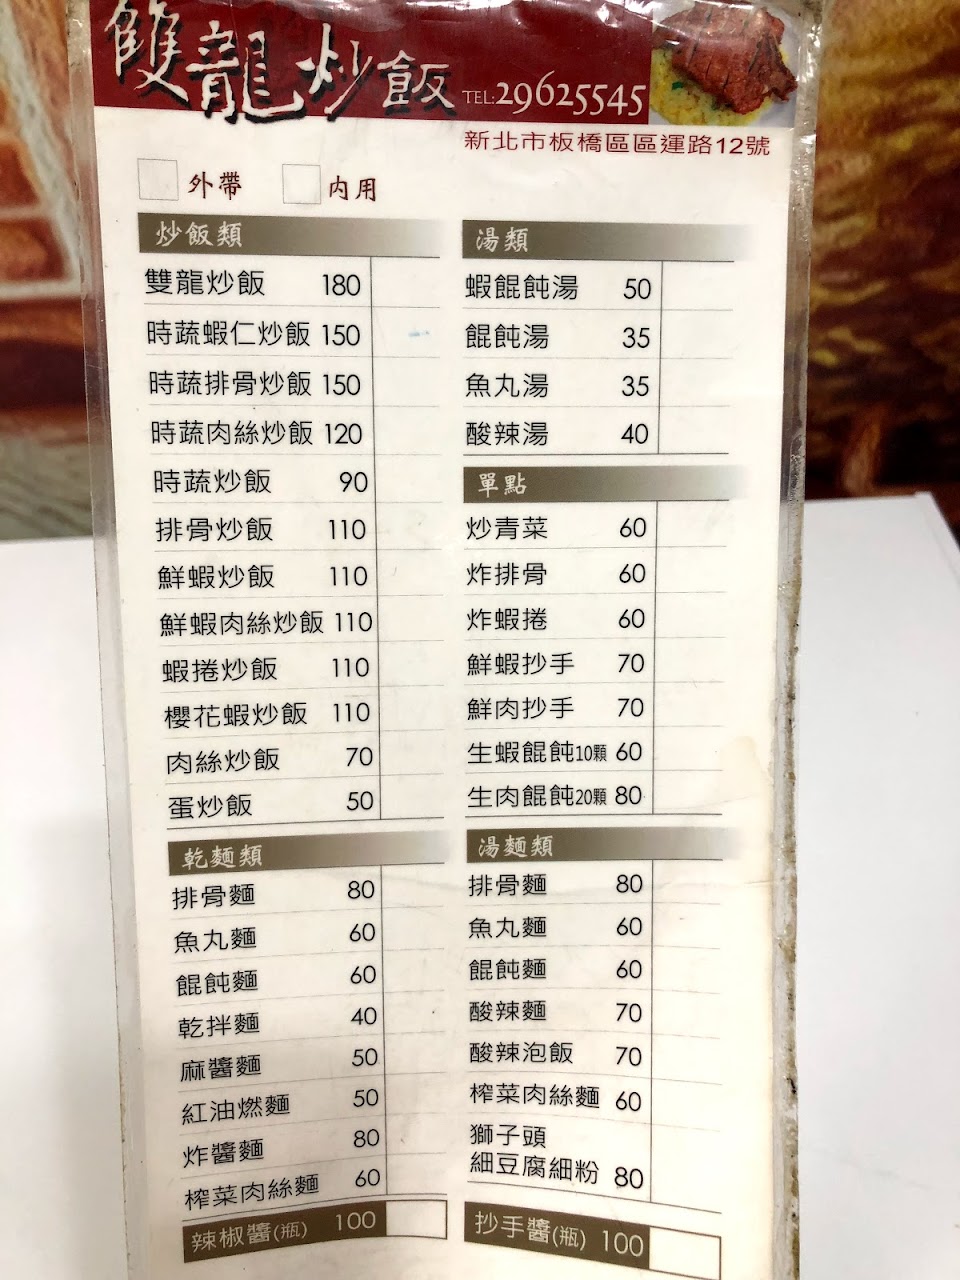 雙龍炒飯 TEL:29625545
新北市板橋區區運路12號
外帶 內用
炒飯類
雙龍炒飯 180
時蔬蝦仁炒飯 150
時蔬排骨炒飯 150
時蔬肉絲炒飯 120
時蔬炒飯 90
排骨炒飯 110
鮮蝦炒飯 110
鮮蝦肉絲炒飯 110
蝦捲炒飯 110
櫻花蝦炒飯 110
肉絲炒飯 70
蛋炒飯 50
乾麵類
排骨麵 80
魚丸麵 60
餛飩麵 60
乾拌麵 40
麻醬麵 50
紅油燃麵 50
炸醬麵 80
榨菜肉絲麵 60
辣椒醬(瓶) 100
湯類
蝦餛飩湯 50
餛飩湯 35
魚丸湯 35
酸辣湯 40
單點
炒青菜 60
炸排骨 60
炸蝦捲 60
鮮蝦抄手 70
鮮肉抄手 70
生蝦餛飩10顆 60
生肉餛飩20顆 80
湯麵類
排骨麵 80
魚丸麵 60
餛飩麵 60
酸辣麵 70
酸辣泡飯 70
榨菜肉絲麵 60
獅子頭
細豆腐細粉 80
抄手醬(瓶) 100